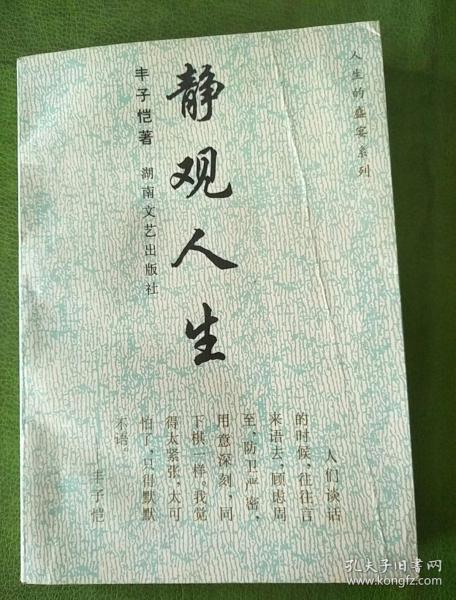 人生的盛宴系列
静观人生
丰子恺著
湖南文艺出版社
人们谈话
的时候，往往言
来语去，顾虑周
至，防卫严密，
用意深刻，同
下棋一样。我觉
得太紧张，太可
怕了，只得默默
不语。
——丰子恺
孔夫子旧书网
www.kongfz.com